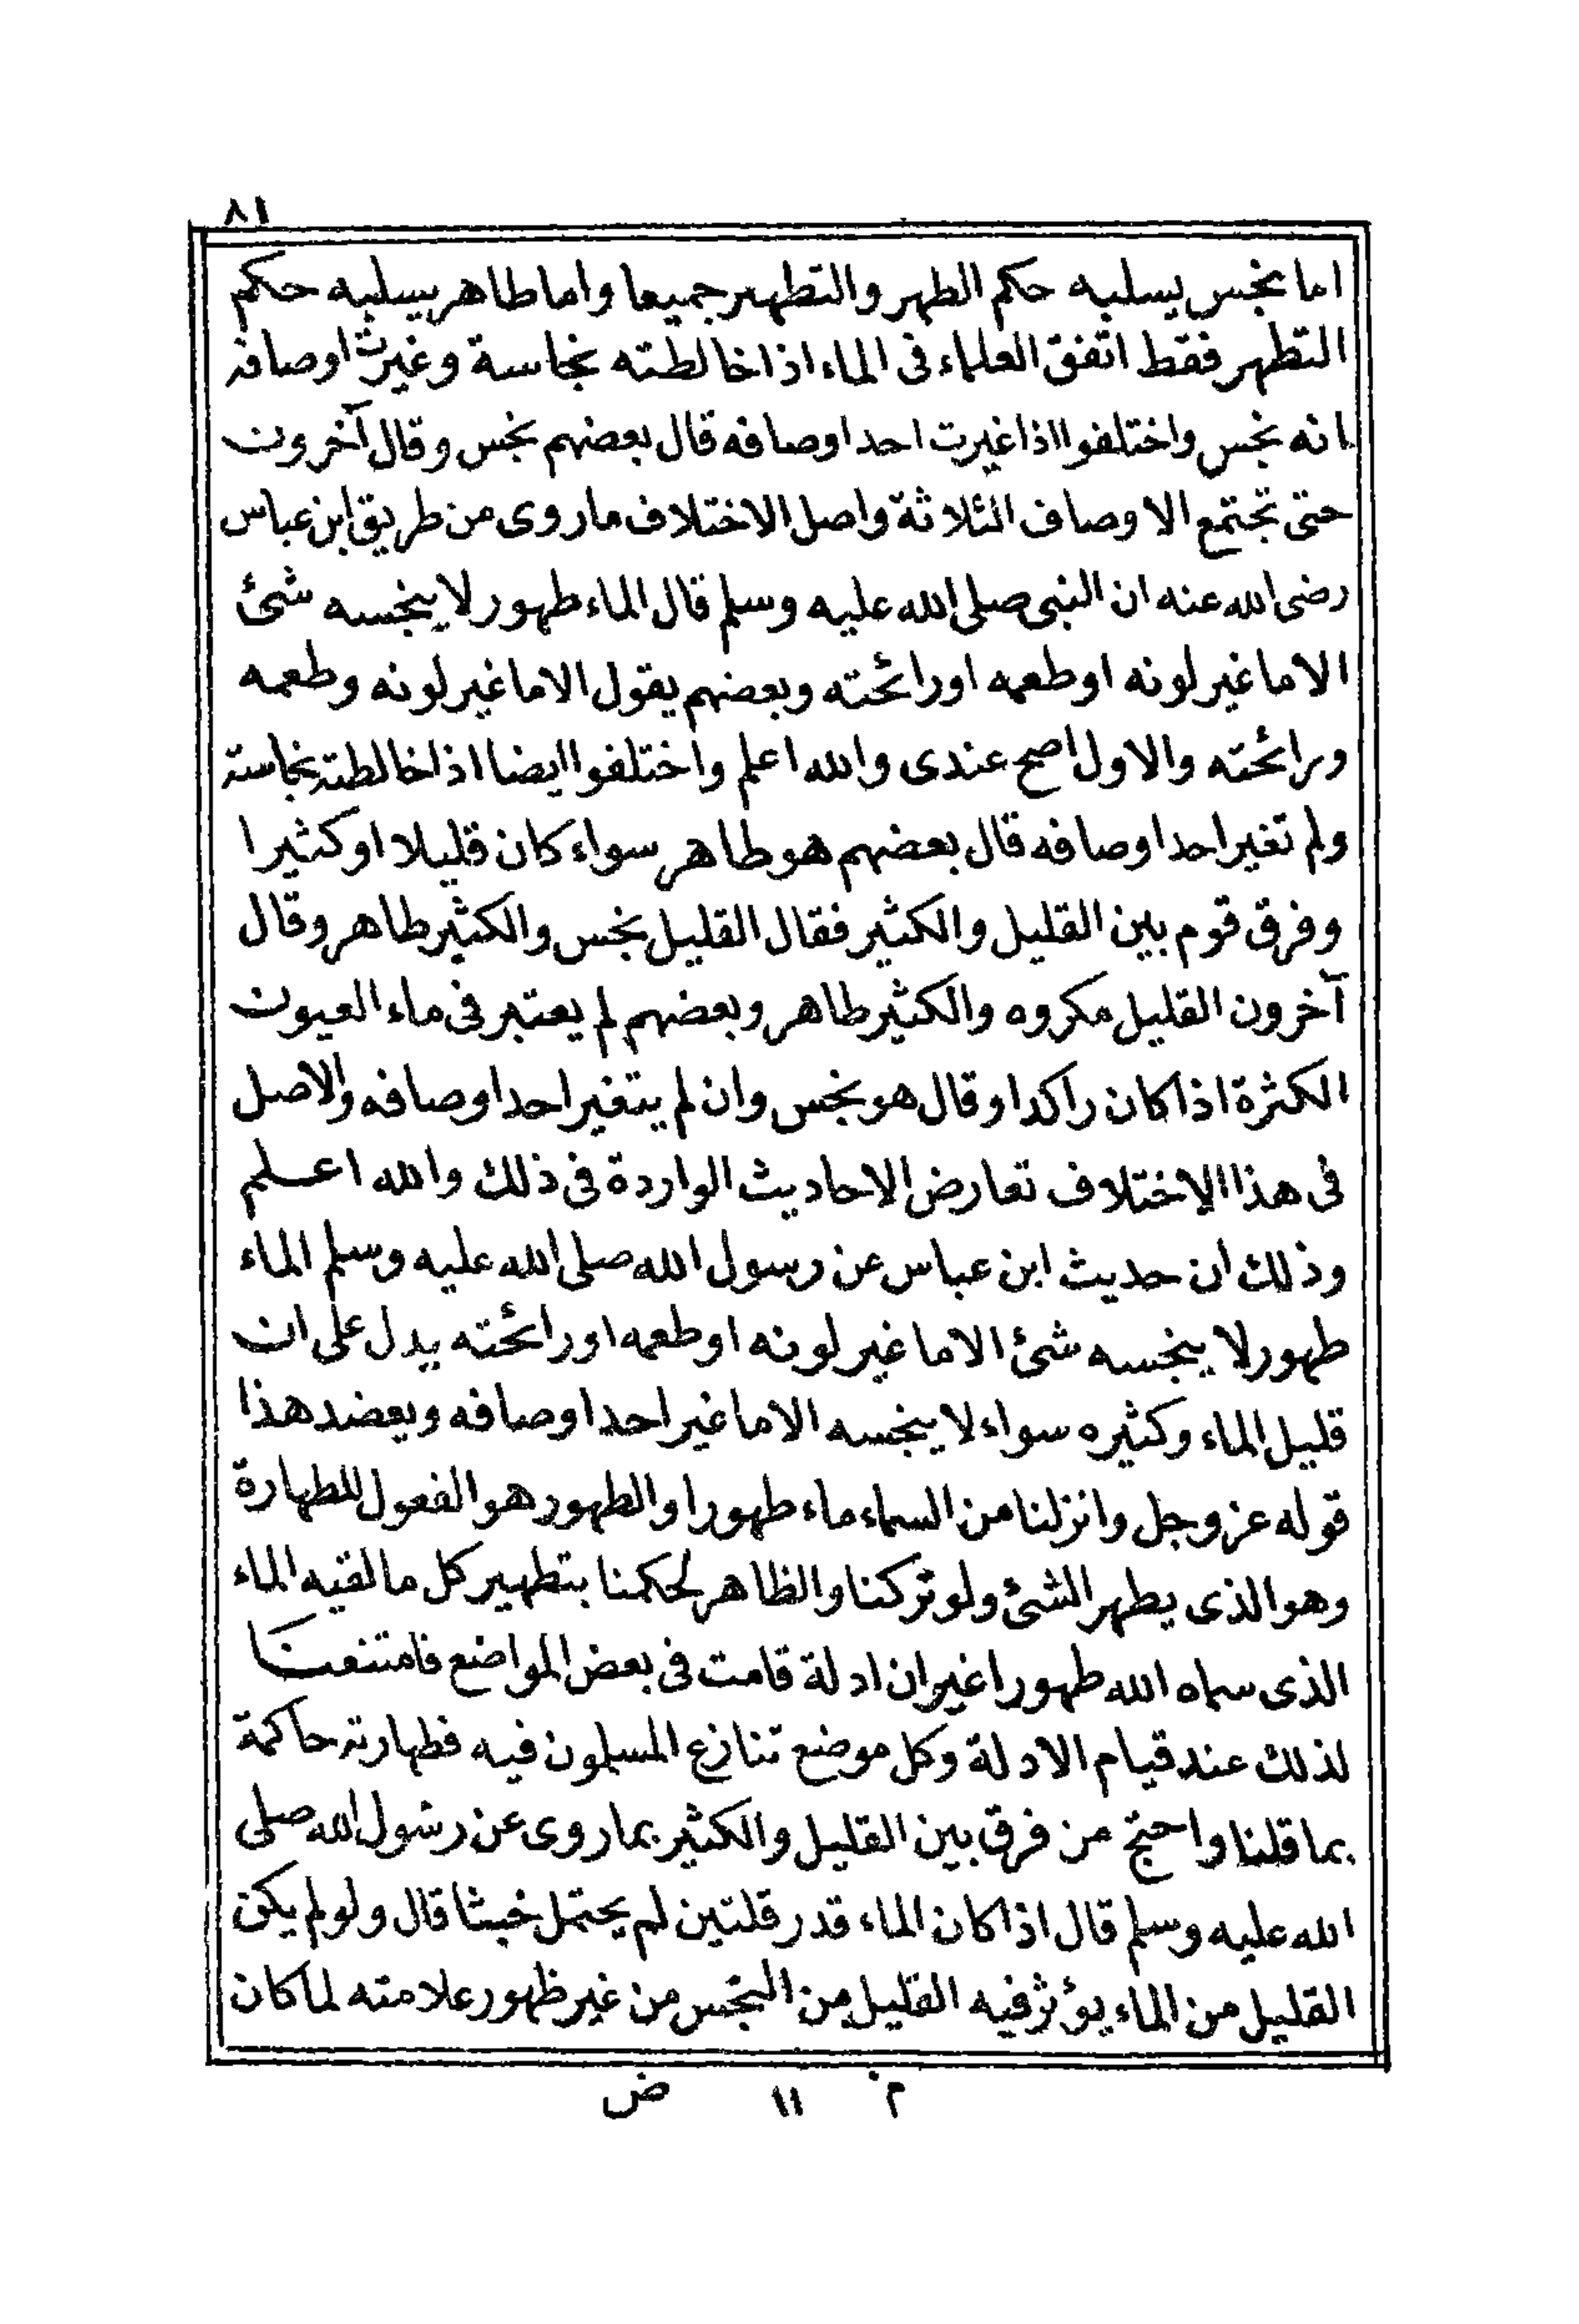 ٨١
اما نجس يسلبه حكم الطهر والتطهير جميعا واما طاهر يسلبه حكم
التطهر فقط اتفق العلماء فى الماء اذا خالطته نجاسة وغيرت اوصافه
انه نجس واختلفوا اذا غيرت احد اوصافه قال بعضهم نجس وقال آخرون
حتى تجتمع الاوصاف الثلاثة واصل الاختلاف ماروى من طريق ابن عباس
رضى الله عنه ان النبى صلى الله عليه وسلم قال الماء طهور لا ينجسه شئ
الا ما غير لونه او طعمه او رائحته وبعضهم يقول الا ما غير لونه وطعمه
ورائحته والاول اصح عندى والله اعلم واختلفوا ايضا اذا خالطته نجاسة
ولم تغير احد اوصافه قال بعضهم هو طاهر سواء كان قليلا او كثيرا
وفرق قوم بين القليل والكثير فقال القليل نجس والكثير طاهر وقال
آخرون القليل مكروه والكثير طاهر وبعضهم لم يعتبر فى ماء العيون
الكثرة اذا كان راكدا وقال هو نجس وان لم يتغير احد اوصافه والاصل
فى هذا الاختلاف تعارض الاحاديث الواردة فى ذلك والله اعلم
وذلك ان حديث ابن عباس عن رسول الله صلى الله عليه وسلم الماء
طهور لا ينجسه شئ الا ما غير لونه او طعمه او رائحته يدل على ان
قليل الماء وكثيره سواء لا ينجسه الا ما غير احد اوصافه ويعضد هذا
قوله عز وجل وانزلنا من السماء ماء طهورا والطهور هو الفعول للطهارة
وهو الذى يطهر الشئ ولو تركنا والظاهر لحكمنا بتطهير كل ما لقيه الماء
الذى سماه الله طهورا غير ان ادلة قامت فى بعض المواضع فامتنعنا
لذلك عند قيام الادلة وكل موضع تنازع المسلمون فيه فطهارته حاكمة
بما قلنا واحتج من فرق بين القليل والكثير بما روى عن رسول الله صلى
الله عليه وسلم قال اذا كان الماء قدر قلتين لم يحتمل خبثا قال ولو لم يكن
القليل من الماء يؤثر فيه القليل من النجس من غير ظهور علامته لما كان
م ١١ ض